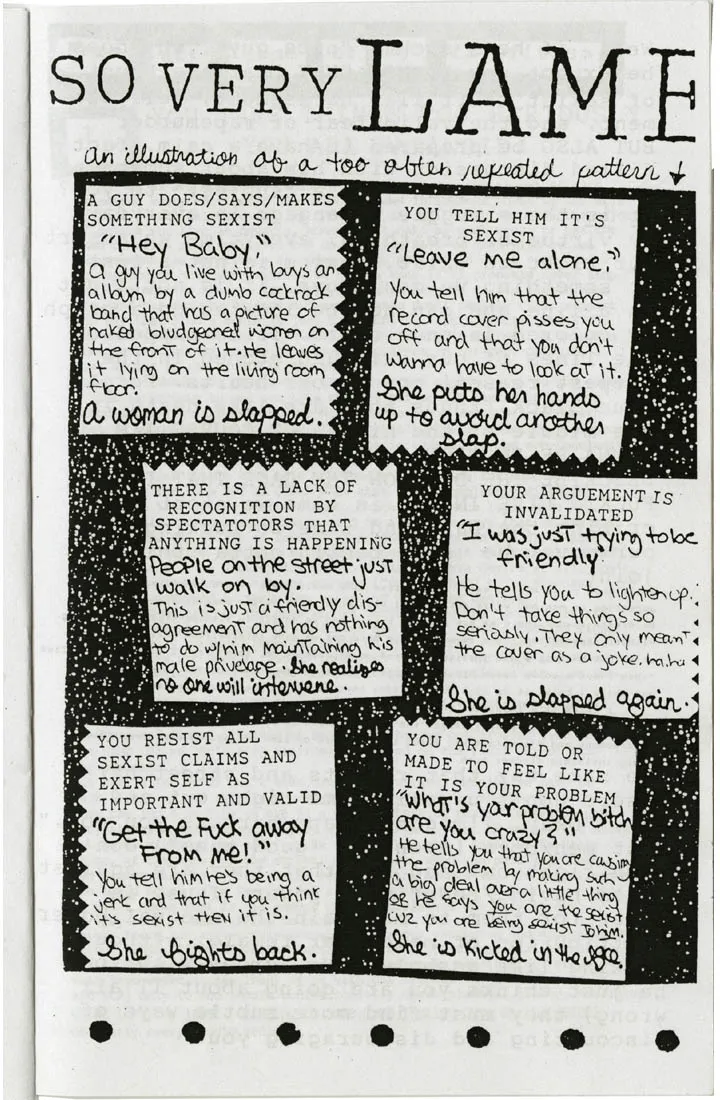 SO VERY LAME
an illustration of a too often repeated pattern
A GUY DOES/SAYS/MAKES
SOMETHING SEXIST
"Hey Baby."
A guy you live with buys an
album by a dumb cockrock
band that has a picture of
naked bludgeoned women on
the front of it. He leaves
it lying on the living room
floor.
A woman is slapped.
YOU TELL HIM IT'S
SEXIST
"Leave me alone."
You tell him that the
record cover pisses you
off and that you don't
wanna have to look at it.
She puts her hands
up to avoid another
slap.
THERE IS A LACK OF
RECOGNITION BY
SPECTATOTORS THAT
ANYTHING IS HAPPENING
People on the street just
walk on by.
This is just a friendly dis-
agreement and has nothing
to do w/him maintaining his
male privelage. She realizes
no one will intervene.
YOUR ARGUEMENT IS
INVALIDATED
"I was just trying to be
friendly"
He tells you to lighten up.
Don't take things so
seriously. They only meant
the cover as a joke. ha.ha
She is slapped again.
YOU RESIST ALL
SEXIST CLAIMS AND
EXERT SELF AS
IMPORTANT AND VALID
"Get the Fuck away
From me!"
You tell him he's being a
jerk and that if you think
it's sexist then it is.
She fights back.
YOU ARE TOLD OR
MADE TO FEEL LIKE
IT IS YOUR PROBLEM
"What's your problem bitch
are you crazy?"
He tells you that you are causing
the problem by making such
a big deal over a little thing
or he says you are the sexist
cuz you are being sexist to him.
She is kicked in the face.